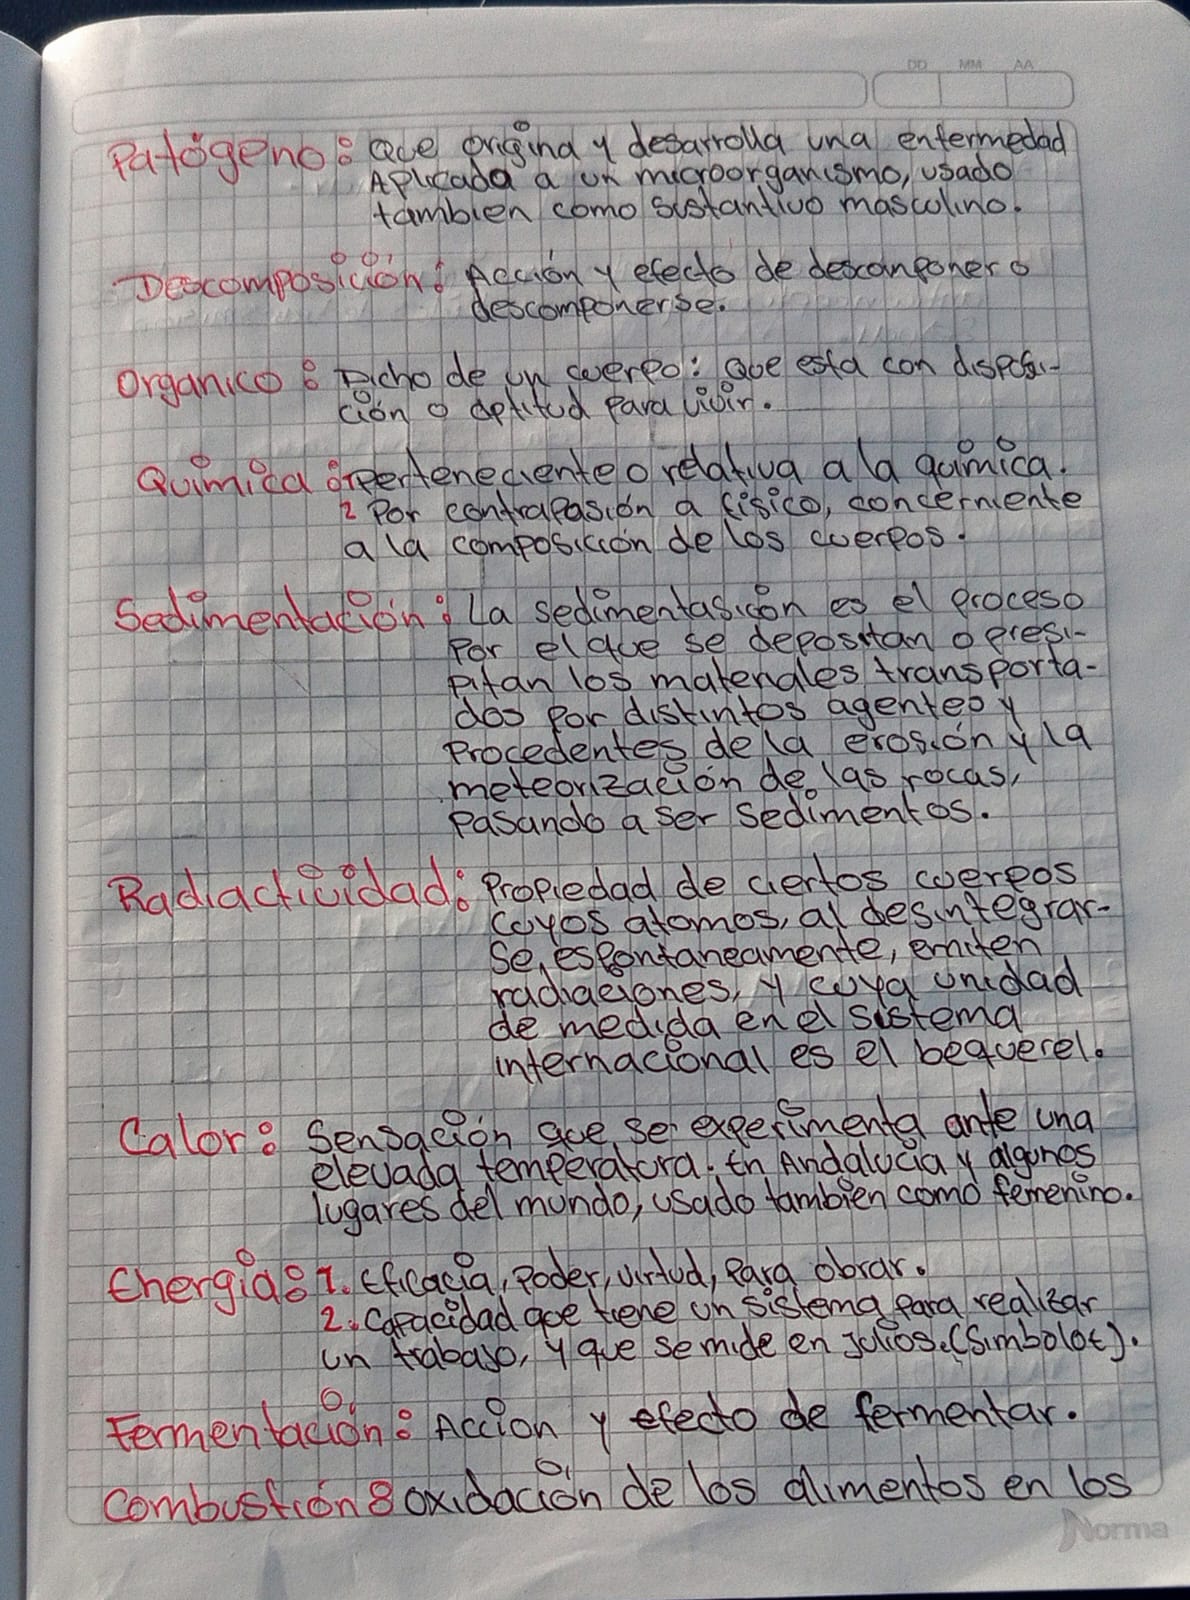 DD MM AA
Patógeno: Que origina y desarrolla una enfermedad
Aplicada a un microorganismo, usado
tambien como sustantivo masculino.
Descomposición: Acción y efecto de descomponer o
descomponerse.
Organico: Dicho de un cuerpo: que esta con disposi-
ción o aptitud para vivir.
Química: perteneciente o relativa a la química.
2 Por contraPasión a físico, concerniente
a la composición de los cuerpos.
Sedimentación: La sedimentasión es el proceso
por el que se depositan o presi-
pitan los materiales transporta-
dos por distintos agentes y
Procedentes de la erosión y la
meteorización de las rocas,
pasando a ser sedimentos.
Radiactividad: Propiedad de ciertos cuerpos
cuyos atomos, al desintegrar-
se, espontaneamente, emiten
radiaciones, y cuya unidad
de medida en el sistema
internacional es el bequerel.
Calor: Sensación que se experimenta ante una
elevada temperatura. En Andalucía y algunos
lugares del mundo, usado tambien como femenino.
Energía: 1. Eficacia, Poder, virtud, para obrar.
2. Capacidad que tiene un sistema para realizar
un trabajo, y que se mide en Julios. (Simbolo E).
Fermentación: Accion y efecto de fermentar.
Combustión: oxidación de los alimentos en los
Norma